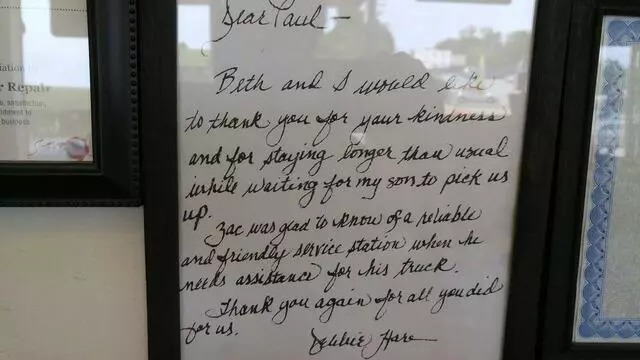 Dear Paul -
Beth and I would like
to thank you for your kindness
and for staying longer than usual
while waiting for my son to pick us
up.
Zac was glad to know of a reliable
and friendly service station when he
needs assistance for his truck.
Thank you again for all you did
for us.
Debbie Hare
Repair
satisfaction,
business.